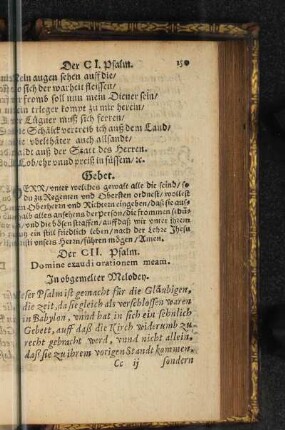 Der CI. Psalm. 150
ein augen sehen auff die/
sich der warheit fleissen/
from̃b soll nun mein Diener sein/
kein trieger kompt zu mir herein/
Lügner muß sich ferren/
Schälck vertreib ich auß dem Land/
vbelthäter auch allsandt/
auß der Statt des Herren.
Lob/ ehr vnnd preiß in süssem/ ꝛc.
Gebet.
HERR/ vnter welchem gewalt alle die seind/ so
du zu Regenten vnd Obersten ordnest/ wöllest
Oberherrn vnd Richtern eingeben/ daß sie
alles ansehens der Person/ die frommen
vnd die bösen straffen/ auff daß wir vnter jhrem
ein still friedlich leben/ nach der Lehre Jhesu
vnsers Herrn/ führen mögen/ Amen.
Der CII. Psalm.
Domine exaudi orationem meam.
In obgemelter Melodey.
Dieser Psalm ist gemacht für die Gläubigen,
die zeit, da sie gleich als verschlossen waren
in Babylon, vnnd hat in sich ein sehnlich
Gebett, auff daß die Kirch widerumb zu-
recht gebracht werd, vnnd nicht allein,
daß sie zu ihrem vorigen Standt kommen,
Cc ij sondern